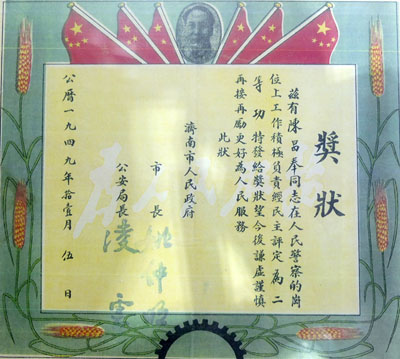 獎狀
茲有陳昌奉同志在人民警察的崗
位上工作積極負責經民主評定為二
等功特發給獎狀望今後謙虛謹慎
再接再勵更好為人民服務
此狀
濟南市人民政府
市長 姚仲明
公安局長 凌雲
公曆一九四九年拾壹月伍日